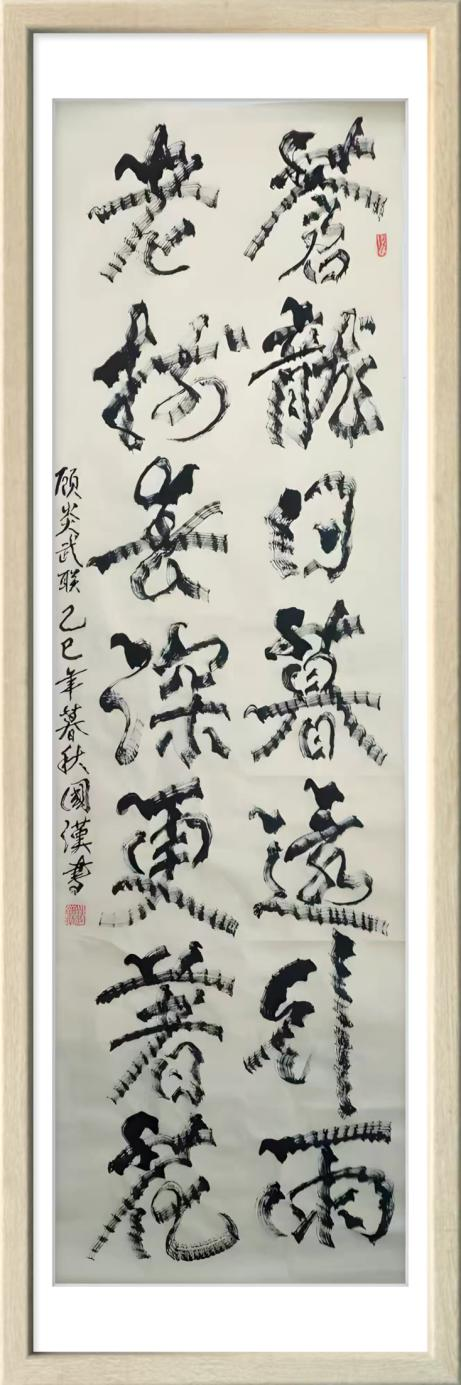 蒼龍日暮還行雨
老樹春深更著花
顾炎武联乙巳年暮秋國漢書